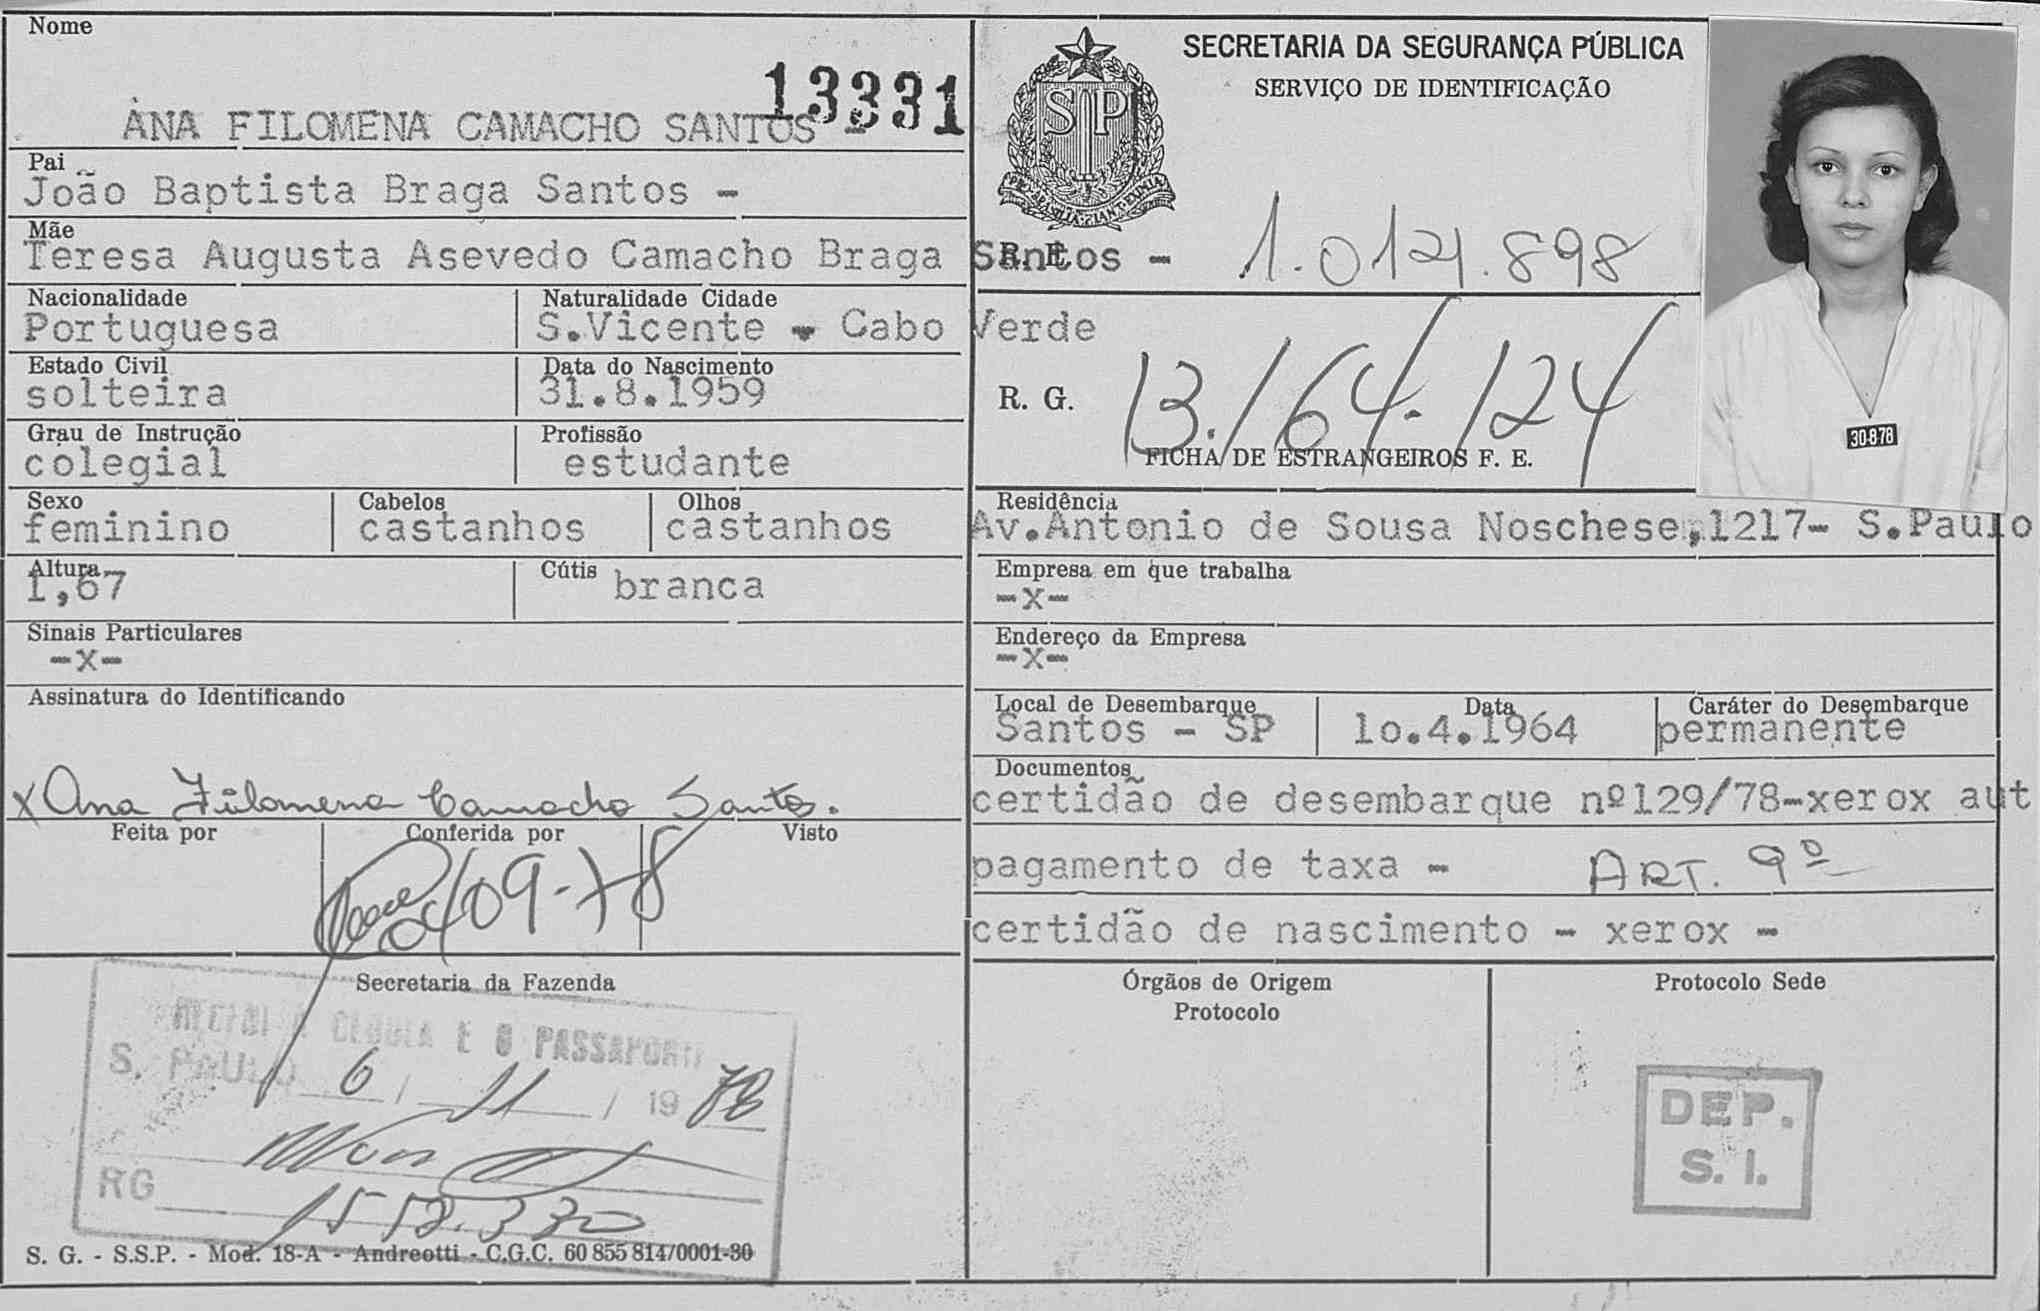 Nome
13331
ANA FILOMENA CAMACHO SANTOS -
Pai
João Baptista Braga Santos -
Mãe
Teresa Augusta Asevedo Camacho Braga Santos -
Nacionalidade
Portuguesa
Naturalidade Cidade
S.Vicente - Cabo Verde
Estado Civil
solteira
Data do Nascimento
31.8.1959
Grau de Instrução
colegial
Profissão
estudante
Sexo
feminino
Cabelos
castanhos
Olhos
castanhos
Altura
1,67
Cútis
branca
Sinais Particulares
-x-
Assinatura do Identificando
x Ana Filomena Camacho Santos.
Feita por
Conferida por
Visto
09-78
Secretaria da Fazenda
RECEBI A CEDULA E O PASSAPORTE
S. PAULO 6 / 11 / 19 78
RG
S. G. - S.S.P. - Mod. 18-A - Andreotti - C.G.C. 60 855 814/0001-30
SECRETARIA DA SEGURANÇA PÚBLICA
SERVIÇO DE IDENTIFICAÇÃO
SP
R. E.
1.014.898
R. G.
13.164.124
FICHA DE ESTRANGEIROS F. E.
30878
Residência
Av.Antonio de Sousa Noschese,1217- S.Paulo
Empresa em que trabalha
-x-
Endereço da Empresa
-x-
Local de Desembarque
Santos - SP
Data
1o.4.1964
Caráter do Desembarque
permanente
Documentos
certidão de desembarque nº129/78-xerox aut
pagamento de taxa - ART. 9º
certidão de nascimento - xerox -
Órgãos de Origem
Protocolo
Protocolo Sede
DEP.
S. I.